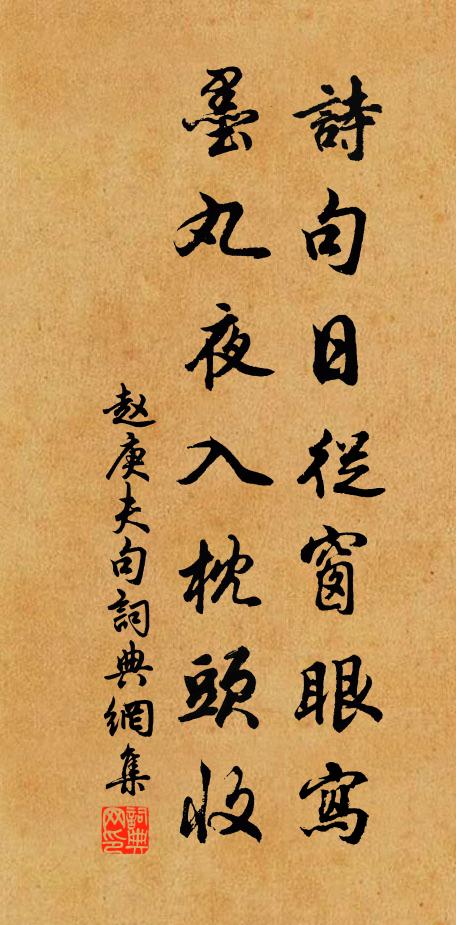 詩句日從窗眼寫
墨丸夜入枕頭收
赵庚夫句詞典網集
詞典网印